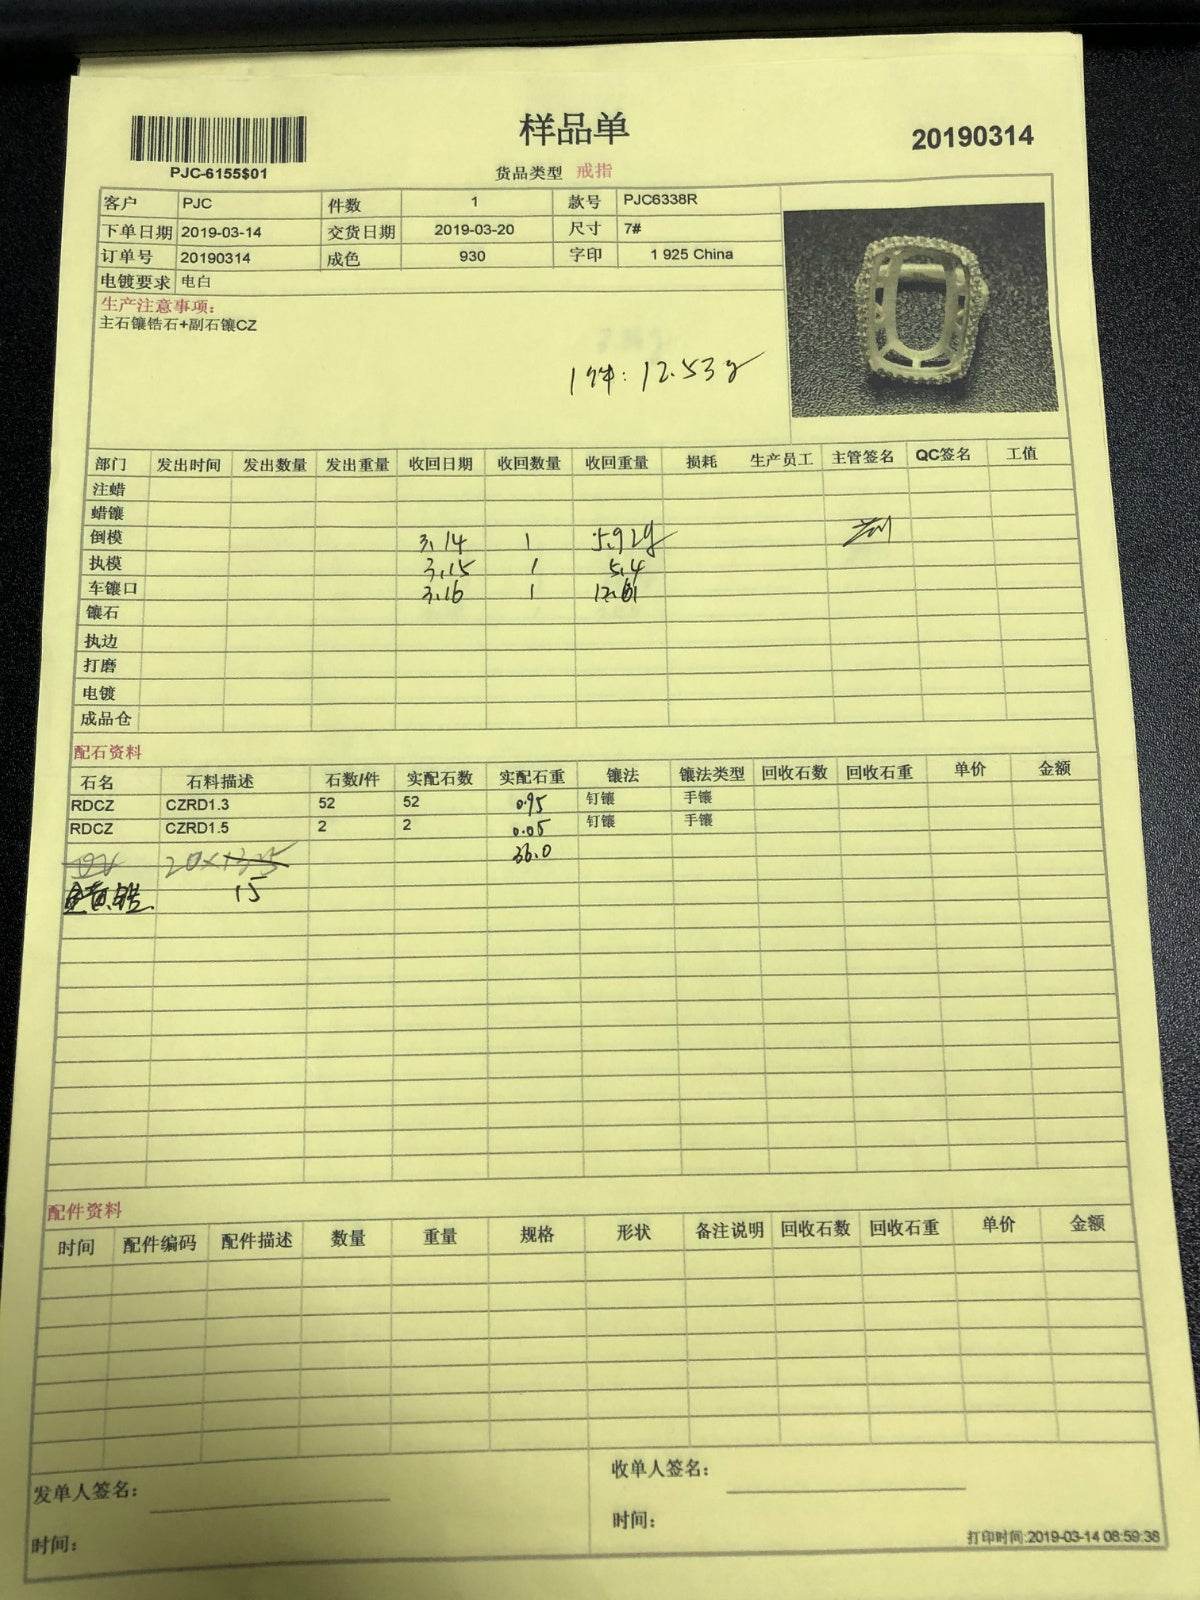 样品单
20190314
PJC-6155$01
货品类型 戒指
客户 PJC 件数 1 款号 PJC6338R
下单日期 2019-03-14 交货日期 2019-03-20 尺寸 7#
订单号 20190314 成色 930 字印 1 925 China
电镀要求 电白
生产注意事项:
主石镶锆石+副石镶CZ
1件: 12.53g
部门 发出时间 发出数量 发出重量 收回日期 收回数量 收回重量 损耗 生产员工 主管签名 QC签名 工值
注蜡
蜡镶
倒模 3.14 1 5.92g
执模 3.15 1 5.4
车镶口 3.16 1
镶石
执边
打磨
电镀
成品仓
配石资料
石名 石料描述 石数/件 实配石数 实配石重 镶法 镶法类型 回收石数 回收石重 单价 金额
RDCZ CZRD1.3 52 52 0.95 钉镶 手镶
RDCZ CZRD1.5 2 2 0.05 钉镶 手镶
20× 36.0
金黄锆 15
配件资料
时间 配件编码 配件描述 数量 重量 规格 形状 备注说明 回收石数 回收石重 单价 金额
发单人签名: 收单人签名:
时间: 时间:
打印时间:2019-03-14 08:59:38